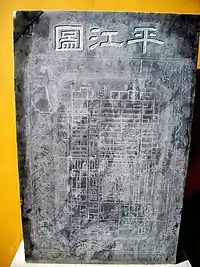 平江圖